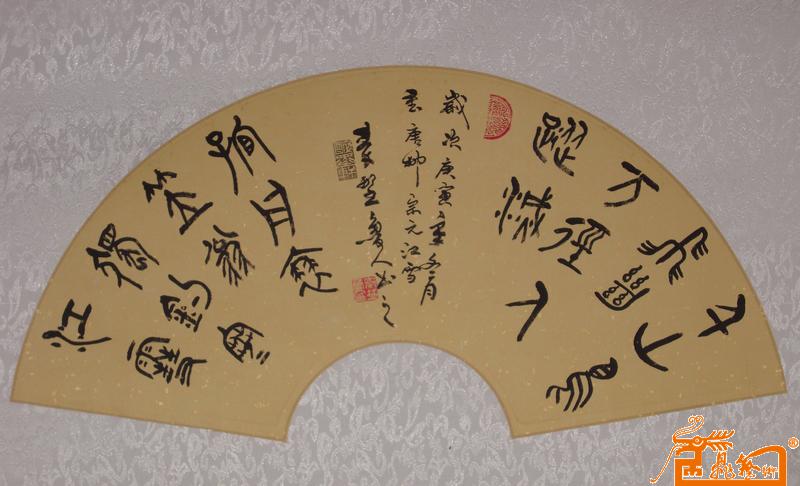 千山鳥
飛絕
万徑人
蹤滅
歲次庚寅冬月
書唐柳宗元江雪
魯人書之
孤舟蓑
笠翁
獨釣寒
江雪